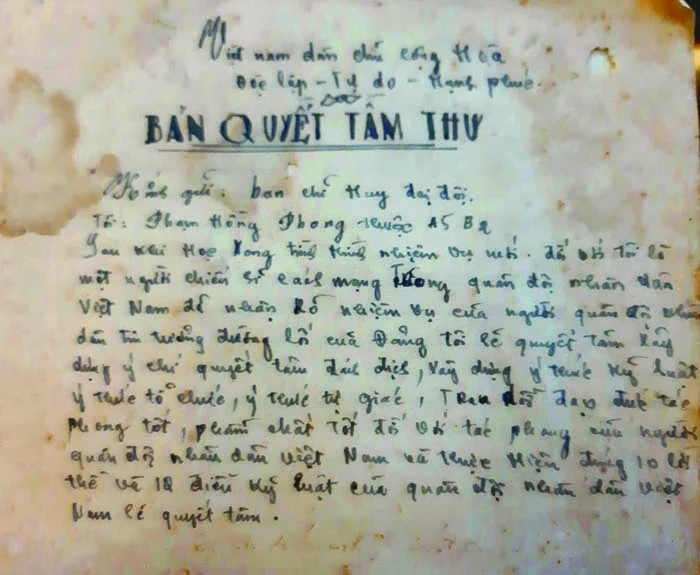 Việt nam dân chủ cộng Hòa
Độc lập - Tự do - Hạnh phúc.
BẢN QUYẾT TÂM THƯ
Kính gửi: ban chỉ Huy đại đội.
Tôi: Phạm Hồng Phong thuộc A5 B2
Sau khi Học xong tình hình nhiệm vụ mới. đối với tôi là
một người chiến sĩ cách mạng trong quân đội nhân dân
Việt Nam để nhận rõ nhiệm vụ của người quân đội nhân
dân tin tưởng đường lối của Đảng tôi sẽ quyết tâm xây
dựng ý chí quyết tâm đánh địch, xây dựng ý thức kỷ luật
ý thức tổ chức, ý thức tự giác, trau dồi đạo đức tác
phong tốt, phẩm chất tốt đối với tác phong của người
quân đội nhân dân Việt Nam và thực hiện đúng 10 lời
thề và 12 điều kỷ luật của quân đội nhân dân Việt
Nam sẽ quyết tâm.